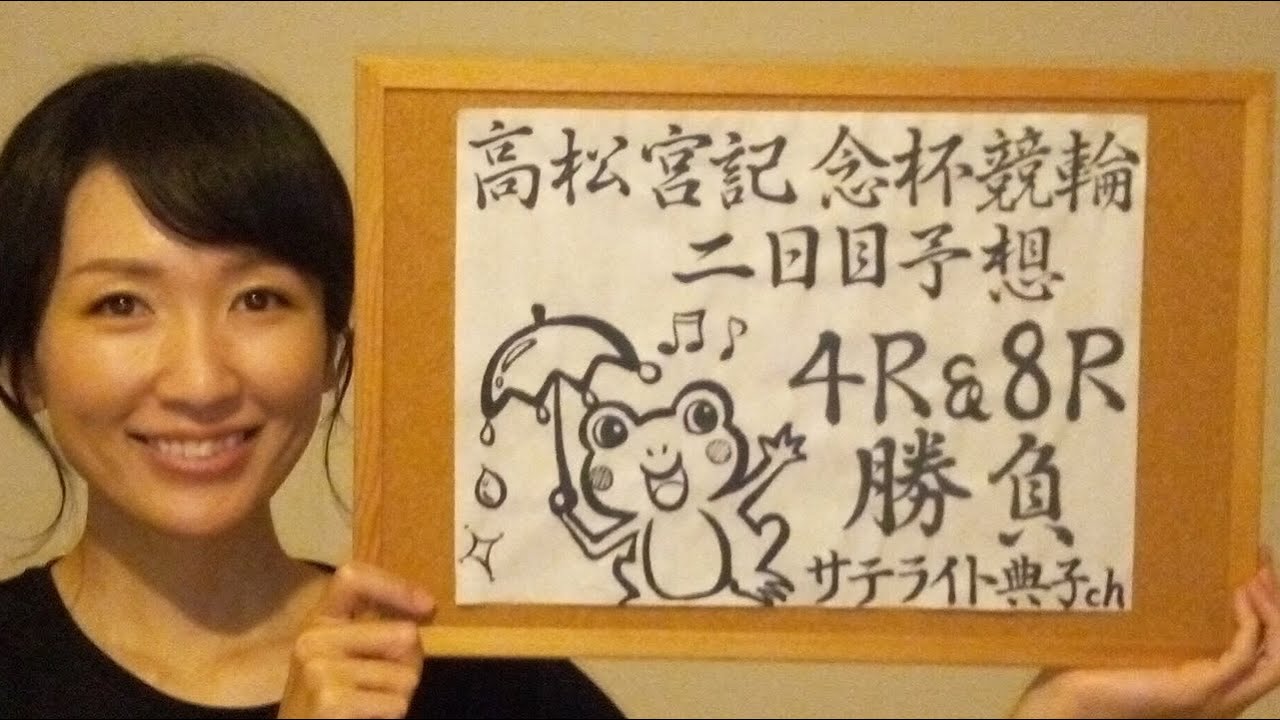 高松宮記念杯競輪
二日目予想
4R&8R
勝負
サテライト典子ch